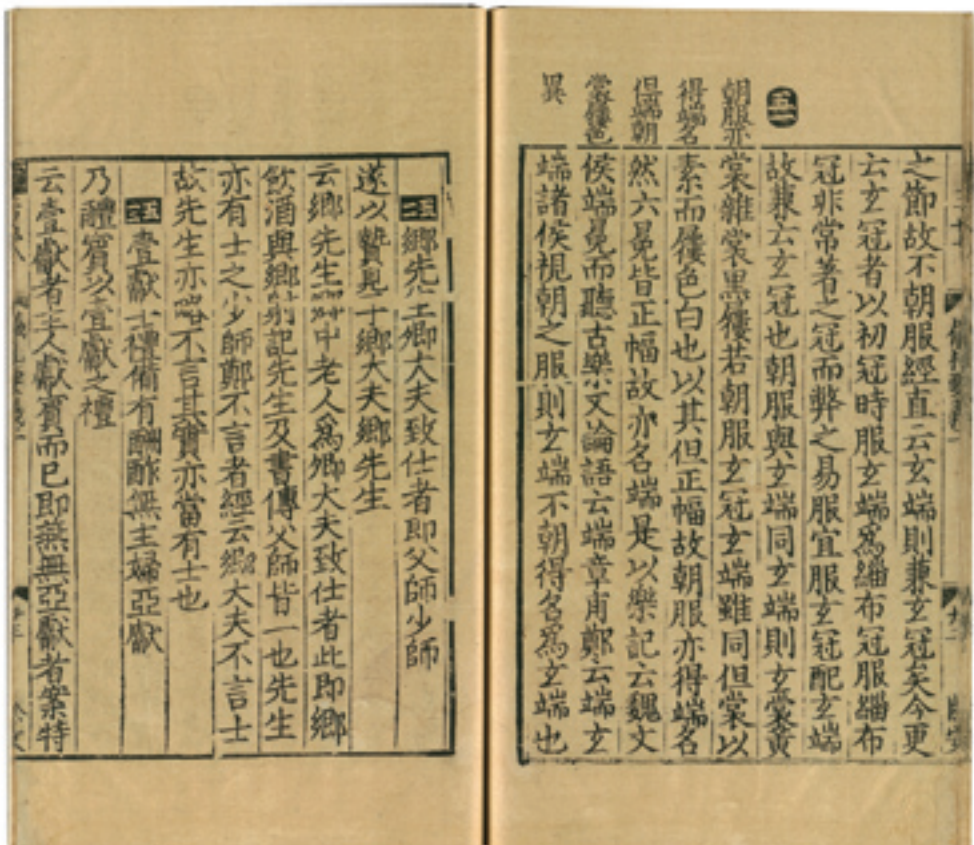 之節故不朝服經直云玄端則兼玄冠矣今更
云玄冠者以初冠時服玄端為緇布冠服緇布
冠非常著之冠而弊之易服宜服玄冠配玄端
故兼云玄冠也朝服與玄端同玄端則玄裳黃
裳雜裳黑屨若朝服玄冠玄端雖同但裳以
素而屨色白也以其但正幅故朝服亦得端名
然六冕皆正幅故亦名端是以樂記云魏文
侯端冕而聽古樂又論語云端章甫鄭云端玄
端諸侯視朝之服則玄端不朝得名為玄端也
五一
朝服亦
得端名
但端朝
裳屨色
異
五二 鄉先生鄉大夫致仕者即父師少師
遂以贄見於鄉大夫鄉先生
云鄉先生鄉中老人為卿大夫致仕者此即鄉
飲酒與鄉射記先生及書傳父師皆一也先生
亦有士之少師鄭不言者經云鄉大夫不言士
故先生亦略不言其實亦當有士也
五三 壹獻士禮備有酬酢無主婦亞獻
乃醴賓以壹獻之禮
云壹獻者主人獻賓而已即燕無亞獻者案特